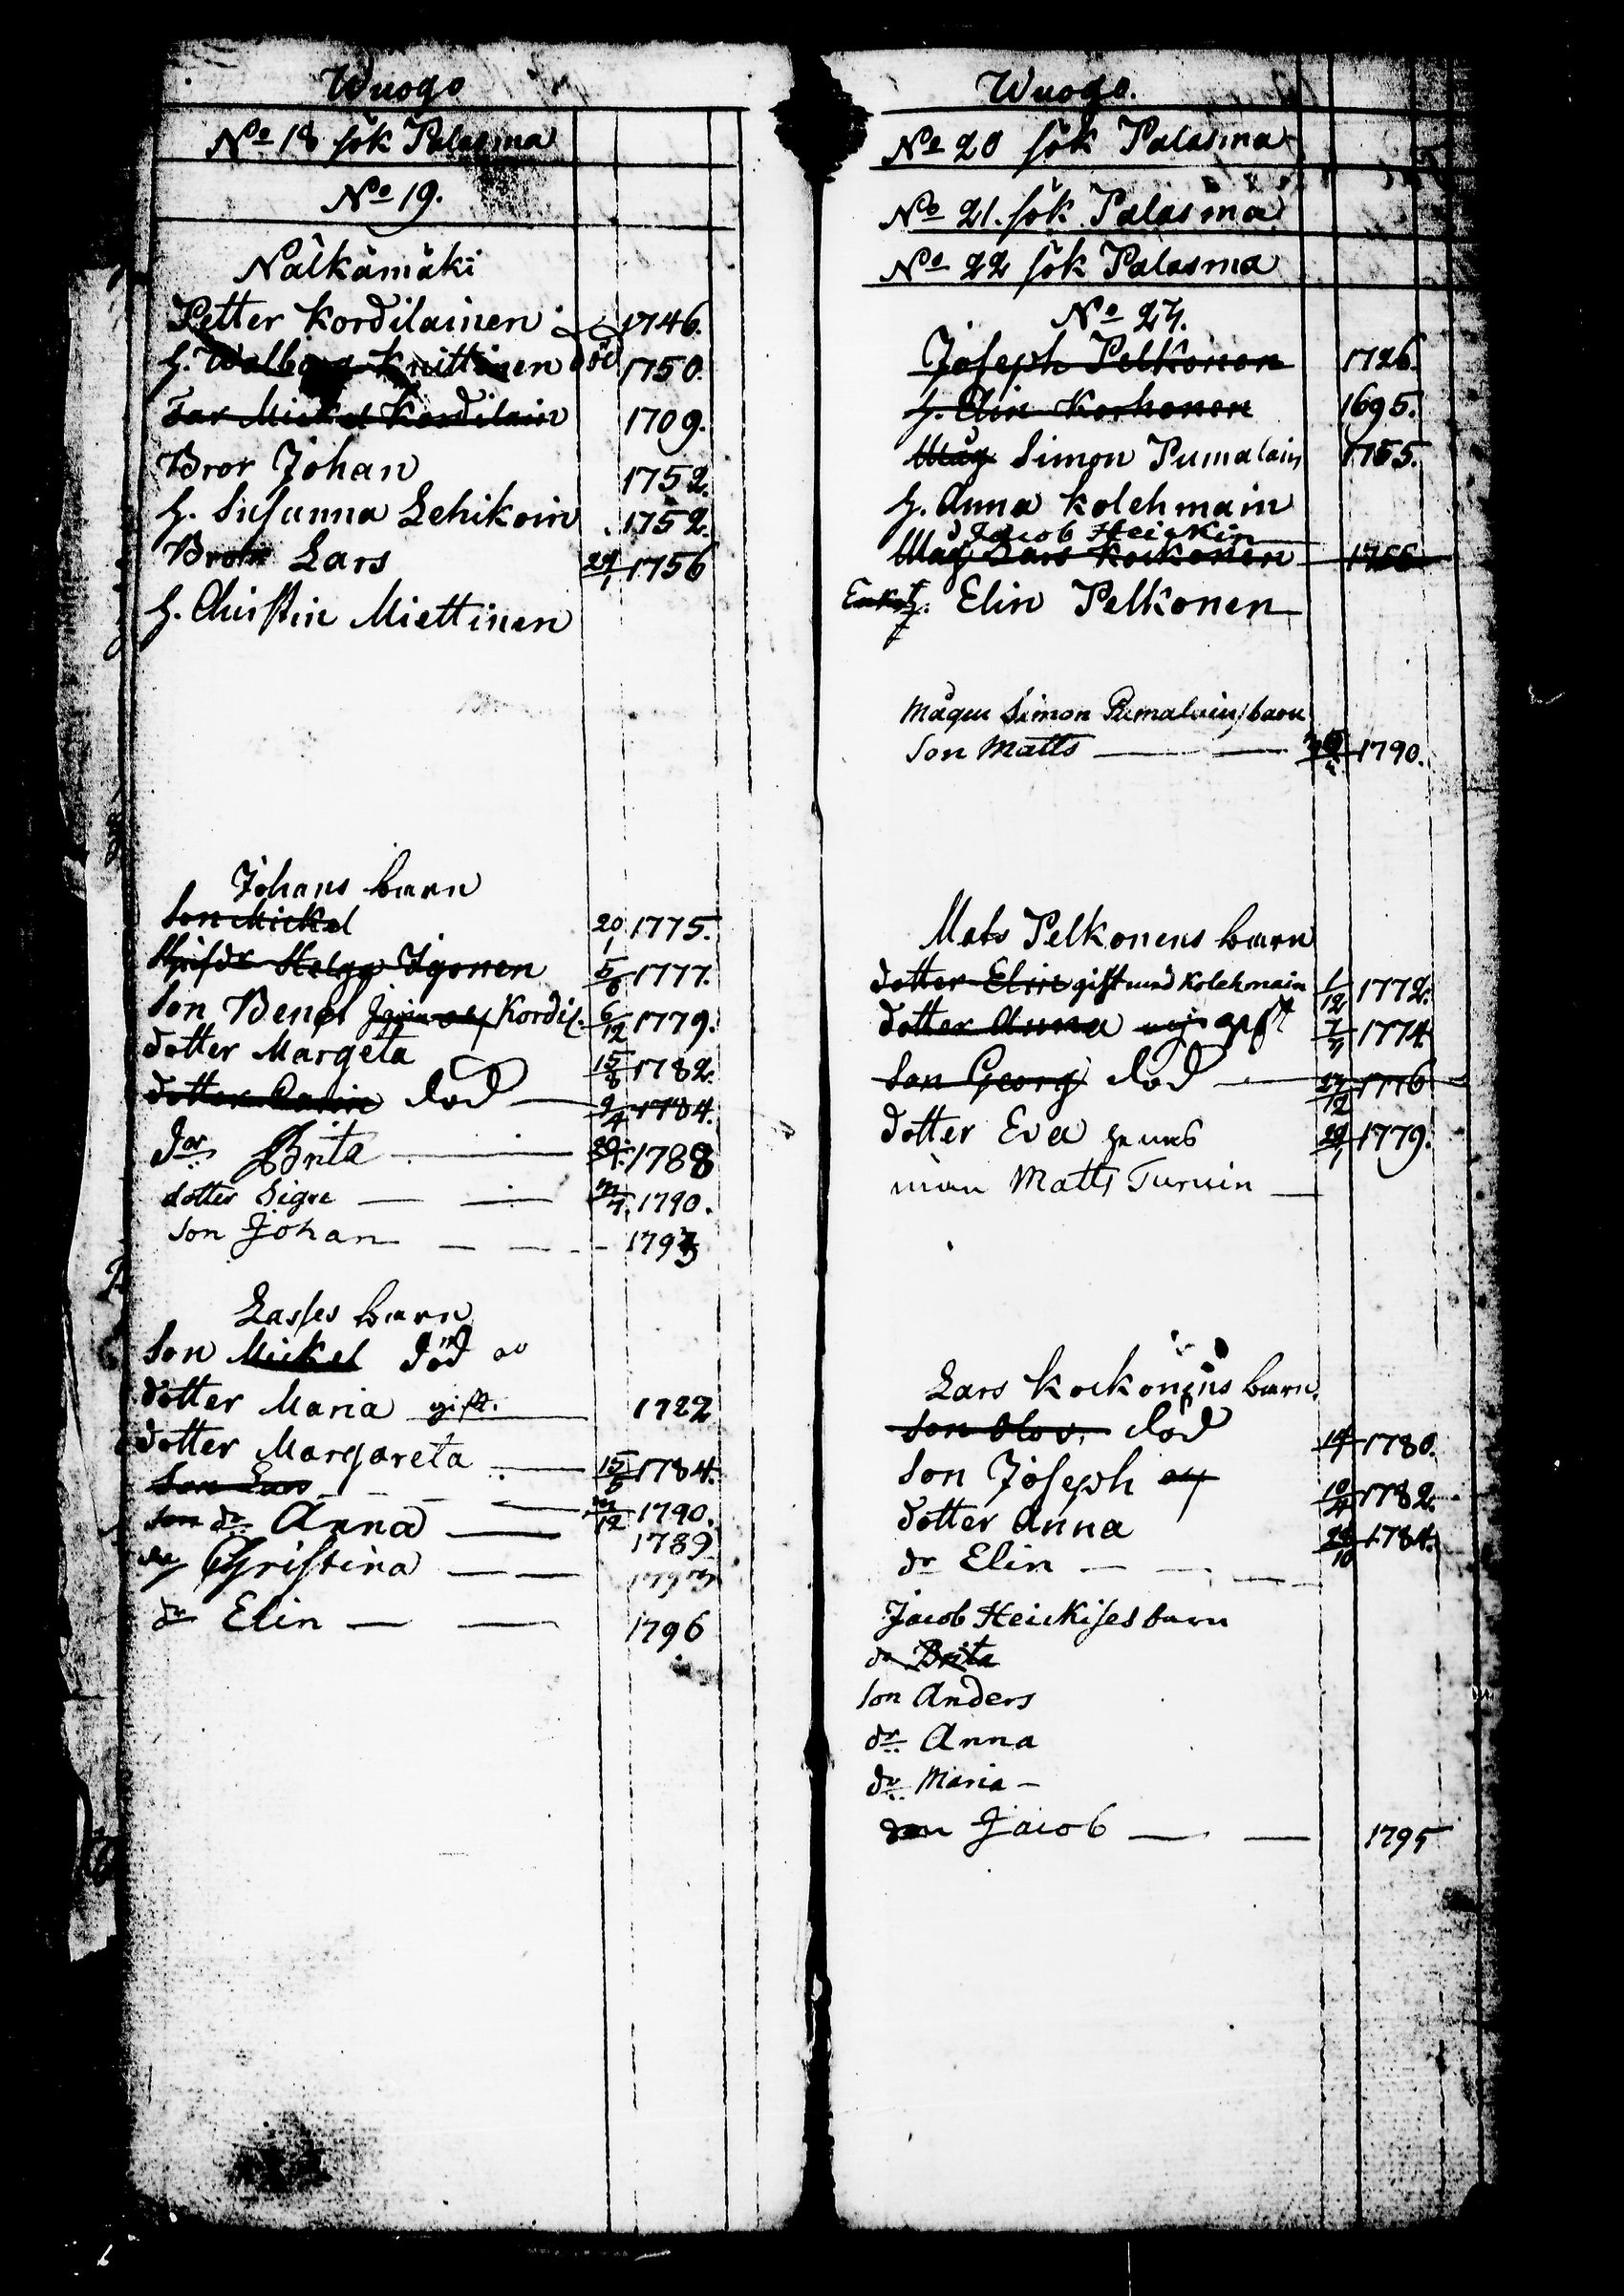 Wuogo
No 18 sök Palasma
No 19.
Nälkämäki
Petter Kordilainen 1746.
h. Walborg Knittinen död 1750.
Far Mickel Kordilain 1709.
Bror Johan 1752.
h. Susanna Lehikoin 1752.
Bror Lars 29/1 1756
h. Christin Miettinen
Johans barn
Son Mickel 20/1 1775.
Helga Igonen 5/8 1777.
Son Bengt Kordil. 6/12 1779.
dotter Margeta 15/8 1782.
dotter Carin död 9/4 1784.
dor Brita 1788
dotter Signe 1790.
Son Johan 1793
Lasses barn
Son Mickel död
dotter Maria gift. 1782
dotter Margareta 15/5 1784.
Son Lars /12 1790.
son dr Anna 1789
Christina
dr Elin 1796
Wuogo.
No 20 sök Palasma
No 21. sök Palasma
No 22 sök Palasma
No 24.
Joseph Pelkonen 1726.
h. Elin Korhonen 1695.
Måg Simon Pumalain 1755.
h. Anna Kolehmain
Jacob Heickin
Måg Lars Kockonen 1755
Enk. h. Elin Pelkonen
Mågen Simon Pumalains barn
Son Matts 1790.
Mats Pelkonens barn
dotter Elin gift med Kolehmain 1/12 1772.
dotter Anna gift 1774
Son Georg död 27/12 1776
dotter Eva 29/1 1779.
man Matts Turuin
Lars Kockonens barn.
Son Olov, död 14/1 1780.
Son Joseph 10/4 1782.
dotter Anna 28/10 1784.
dr Elin
Jacob Heickises barn
dr Brita
Son Anders
dr Anna
dr Maria
son Jacob 1795